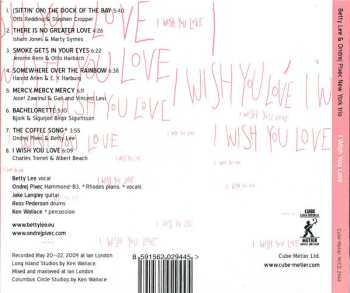 1. (SITTIN' ON) THE DOCK OF THE BAY 5:40
Otis Redding & Stephen Cropper
2. THERE IS NO GREATER LOVE 4:26
Isham Jones & Marty Symes
3. SMOKE GETS IN YOUR EYES 6:22
Jerome Kern & Otto Harbach
4. SOMEWHERE OVER THE RAINBOW 6:38
Harold Arlen & E. Y. Harburg
5. MERCY, MERCY, MERCY
Josef Zawinul & Gail and Vincent Levi
6. BACHELORETTE
Bjork & Sigurjon Birgir Sigurtsson
7. THE COFFEE SONG* 3:55
Ondrej Pivec & Betty Lee
8. I WISH YOU LOVE 6:09
Charles Trenet & Albert Beach
Betty Lee vocal
Ondrej Pivec Hammond-B3, * Rhodes piano, * vocals
Jake Langley guitar
Ross Pederson drums
Ken Wallace * percussion
www.bettylee.eu
www.ondrejpivec.com
Recorded May 20–22, 2009 at Ian London
Long Island Studios by Ken Wallace
Mixed and mastered at Ian London
Columbus Circle Studios by Ken Wallace
8 591562 029445 >
CUBE
METIER
Cube Metier Ltd.
www.cube-metier.com
I WISH YOU LOVE
I WISH YOU LOVE
YOU LOVE
I WISH YOU LOVE
I WISH YOU LOVE
Betty Lee & Ondrej Pivec New York Trio
I WISH YOU LOVE